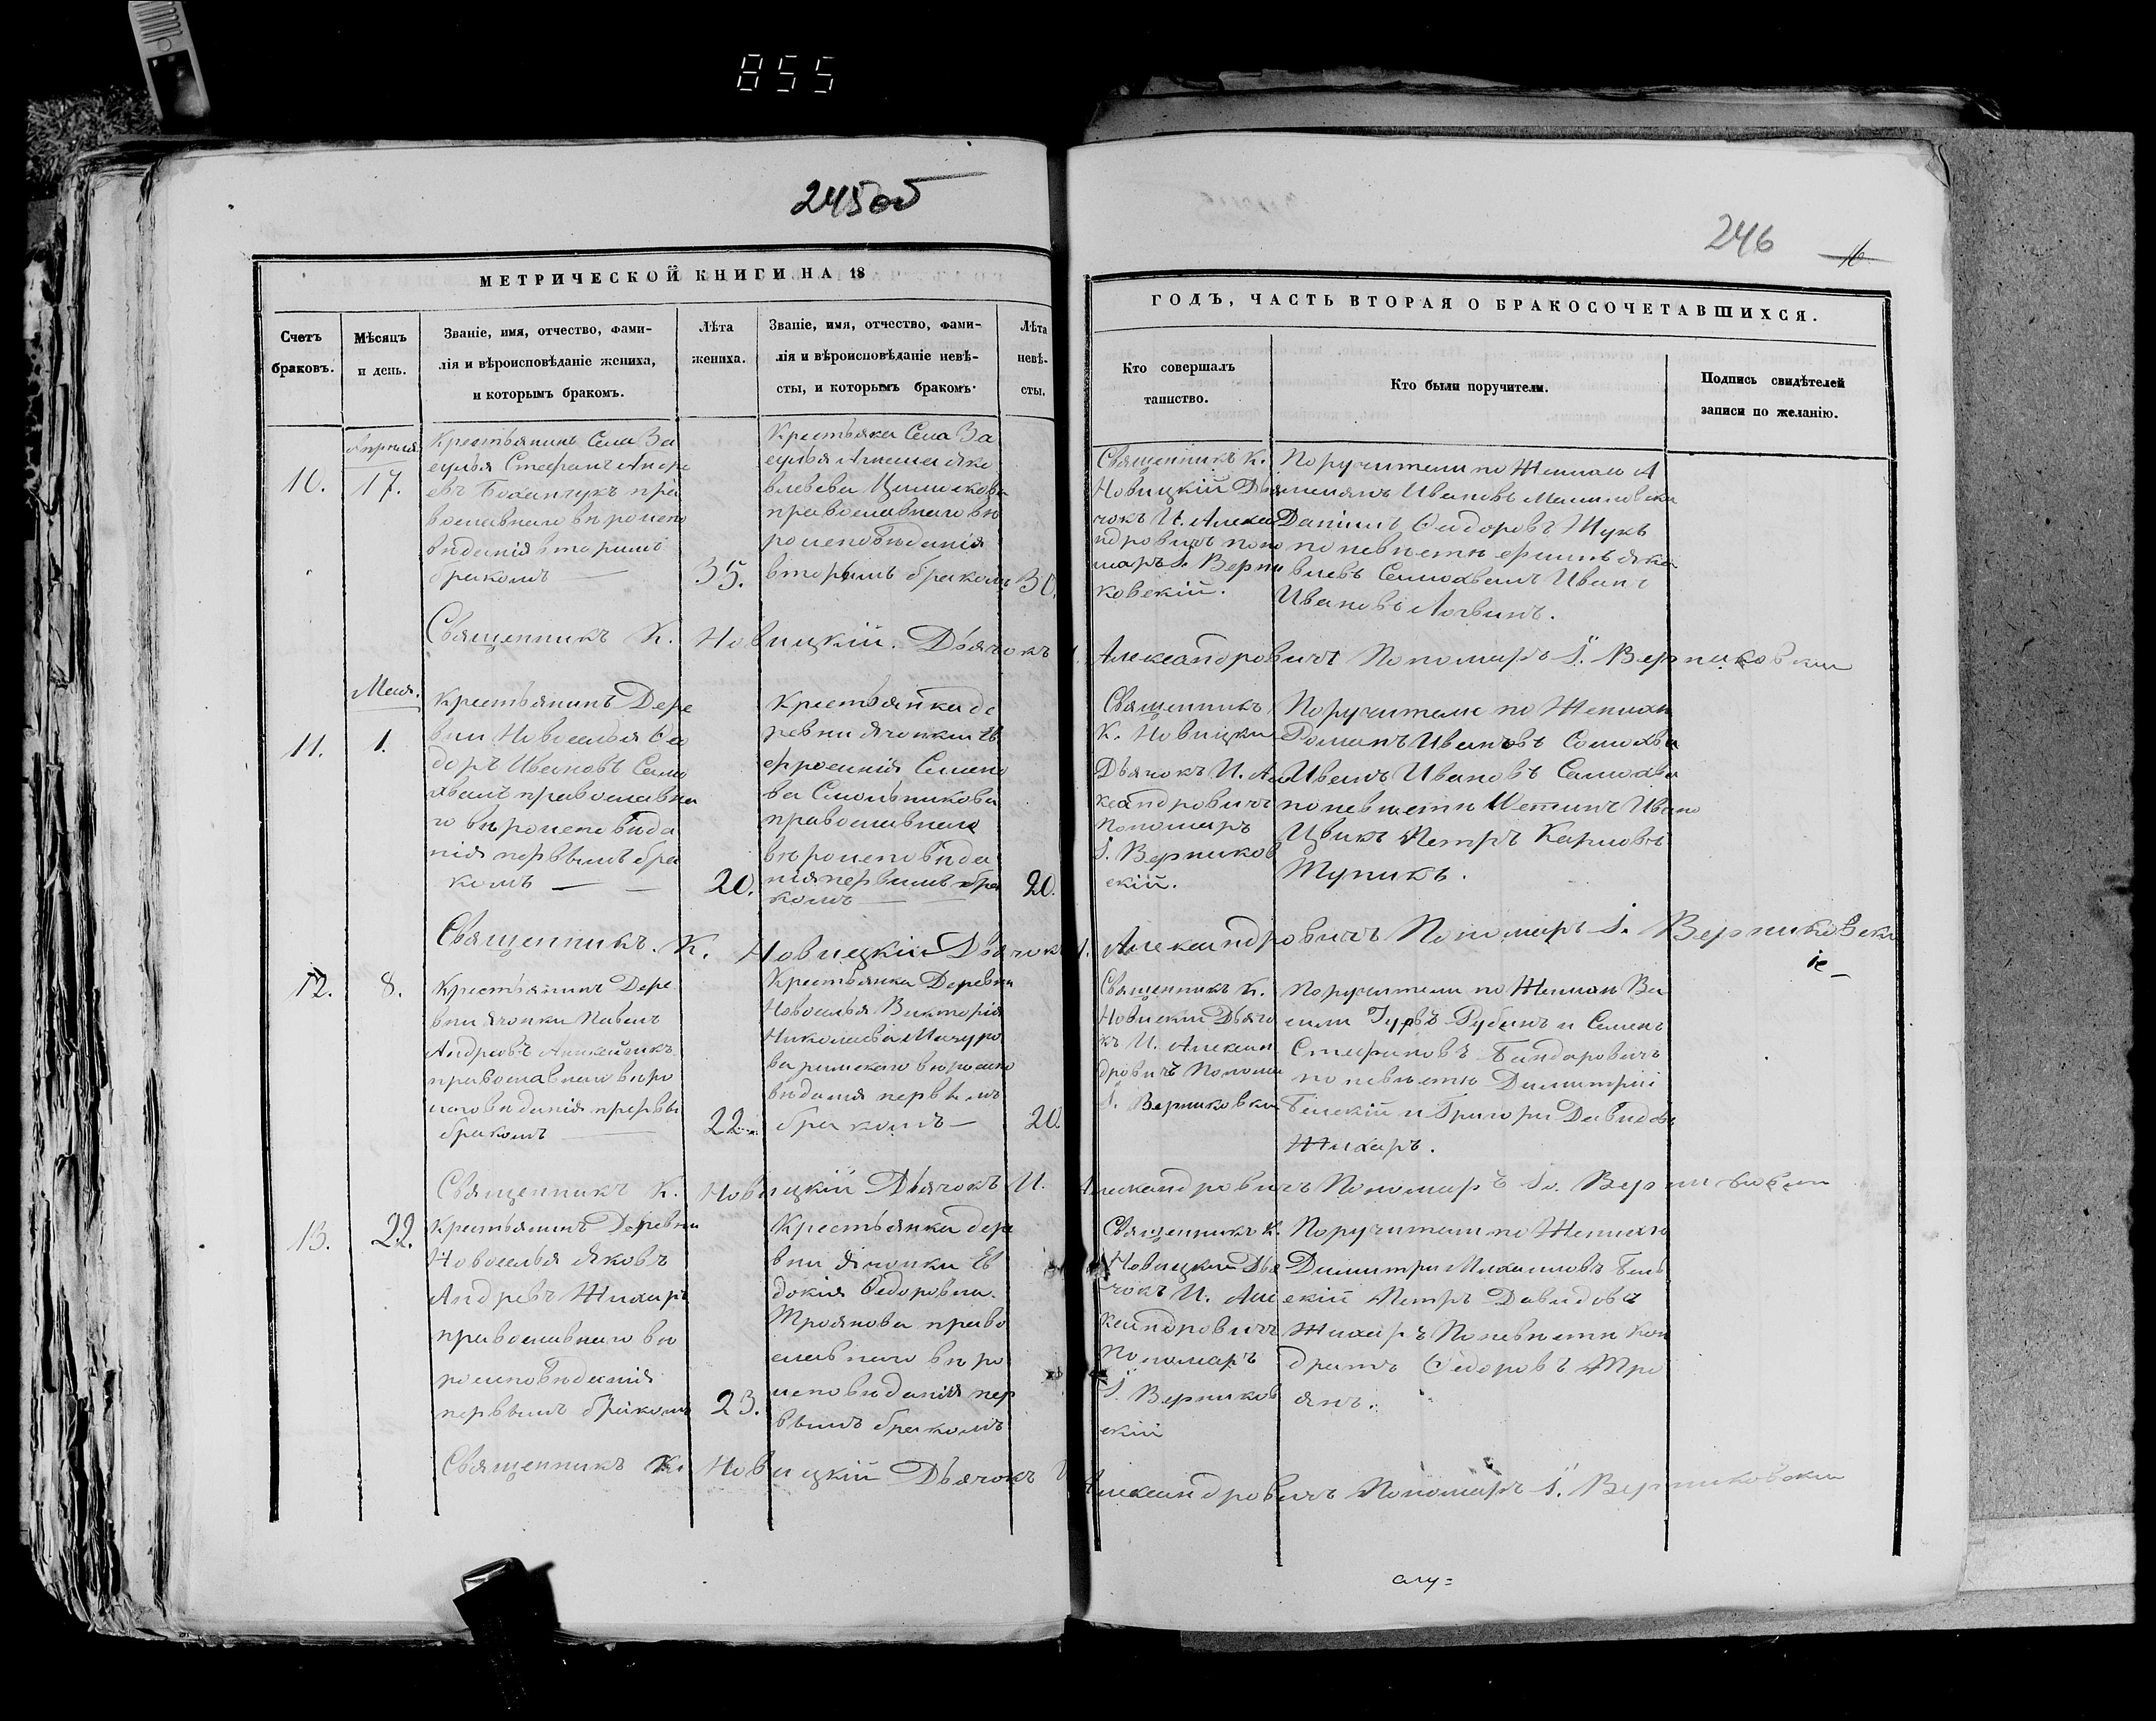 855
245об
246
16
МЕТРИЧЕСКОЙ КНИГИ НА 18
ГОДЪ, ЧАСТЬ ВТОРАЯ О БРАКОСОЧЕТАВШИХСЯ.
Счетъ
браковъ.
Мѣсяцъ
и день.
Званіе, имя, отчество, фами-
лія и вѣроисповѣданіе жениха,
и которымъ бракомъ.
Лѣта
жениха.
Званіе, имя, отчество, фами-
лія и вѣроисповѣданіе невѣ-
сты, и которымъ бракомъ.
Лѣта
невѣ-
сты.
Кто совершалъ
таинство.
Кто были поручители.
Подпись свидѣтелей
записи по желанію.
10.
Апреля
17.
Крестьянинъ Села За
Стефанъ
евъ пра
вославнаго вѣроиспо
вѣданія вторымъ
бракомъ
35.
Села За
православнаго вѣ
роисповѣданія
вторымъ бракомъ
30.
Священникъ К.
Новицкій Дья
чокъ И. Алекса
ндровичъ поно
марь І. Верни
ковскій.
Поручители по Женихѣ
Ивановъ
Даніилъ Федоровъ Жукъ
по невѣстѣ Яко
влевъ Иванъ
Ивановъ
Священникъ К. Новицкій. Дьячокъ И. Александровичъ Пономарь І. Верниковскій
Мая.
11.
1.
Крестьянинъ Дере
вни Новоселья Фео
доръ Ивановъ Само
хвалъ православна
го вѣроисповѣда
нія первымъ бра
комъ
20.
Крестьянка де
ревни Ячонки Ев
фросинія Семено
ва
православнаго
вѣроисповѣда
нія первымъ бра
комъ
20.
Священникъ
К. Новицкій
Дьячокъ И. Але
ксандровичъ
Пономарь
І. Верников
скій.
Поручители по Женихѣ
Романъ Ивановъ Самохва
Иванъ Ивановъ Самохва
по невѣстѣ Ивано
Цвикъ Петръ Карповъ
Тупикъ.
Священникъ. К. Новицкій Дьячокъ И. Александровичъ Пономарь І. Верниковскі
й
12.
8.
Крестьянинъ Дере
вни Ячонки Павелъ
Андреевъ
православнаго вѣро
исповѣданія первы
бракомъ
22.
Крестьянка Деревни
Новоселья Викторія
Николаева Мазуро
ва римскаго вѣроиспо
вѣданія первымъ
бракомъ
20.
Священникъ К.
Новицкій Дьячо
къ И. Алексан
дровичъ Понома
І. Верниковскій
Поручители по Женихѣ Ва
силій Рубанъ и Семенъ
Стефановъ Бандаровичъ
по невѣстѣ Димитрій
Бѣлскій и Григорій Давидовъ
Жихарь.
Священникъ К. Новицкій Дьячокъ И. Александровичъ Пономарь Іо. Верниковскій
13.
22.
Крестьянинъ Деревни
Новоселья Яковъ
Андреевъ Жихарь
православнаго вѣ
роисповѣданія
первымъ бракомъ
23.
Крестьянка дере
вни Ячонки Ев
докія Федоровна
Троянова право
славнаго вѣро
исповѣданія пер
вымъ бракомъ
Священникъ К.
Новицкій Дья
чокъ И. Але
ксандровичъ
Пономарь
І. Верников
скій
Поручители по Женихѣ
Димитрій Михаиловъ Бѣль
скій Петръ Давидовъ
Жихарь По невѣстѣ Кон
дратъ Федоровъ Тро
янъ.
Священникъ К. Новицкій Дьячокъ И. Александровичъ Пономарь І. Верниковскій